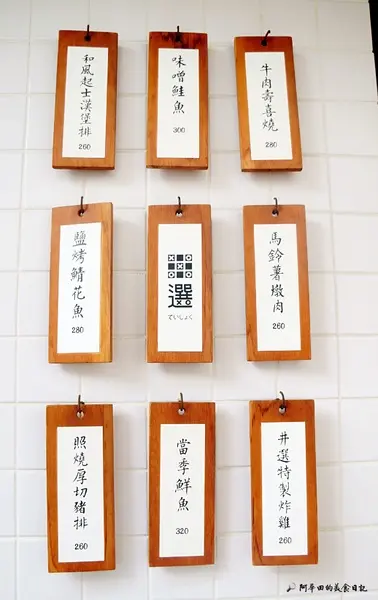 和風起士漢堡排
260
味噌鮭魚
300
牛肉壽喜燒
280
鹽烤鯖花魚
280
選
ていしょく
馬鈴薯燉肉
260
照燒厚切豬排
260
當季鮮魚
320
井選特製炸雞
260
阿華田的美食日記